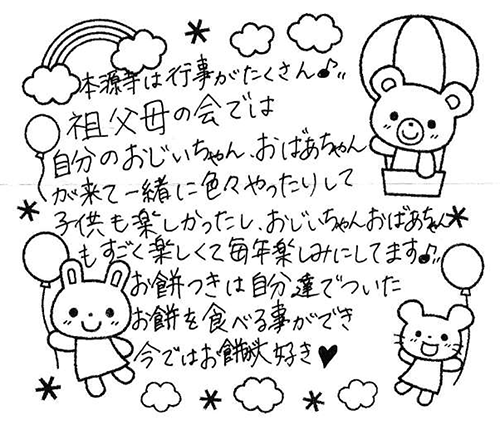 本源寺は行事がたくさん♪!!
祖父母の会では
自分のおじぃちゃん、おばあちゃん
が来て一緒に色々やったりして
子供も楽しかったし、おじぃちゃんおばあちゃん
もすごく楽しくて毎年楽しみにしてます♪!!
お餅つきは自分達でついた
お餅を食べる事ができ
今ではお餅が大好き♥